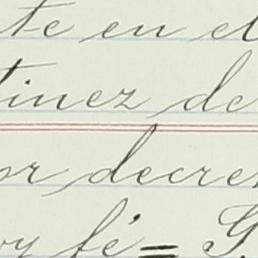 te en el
tinez de
or decre
oy fé= S